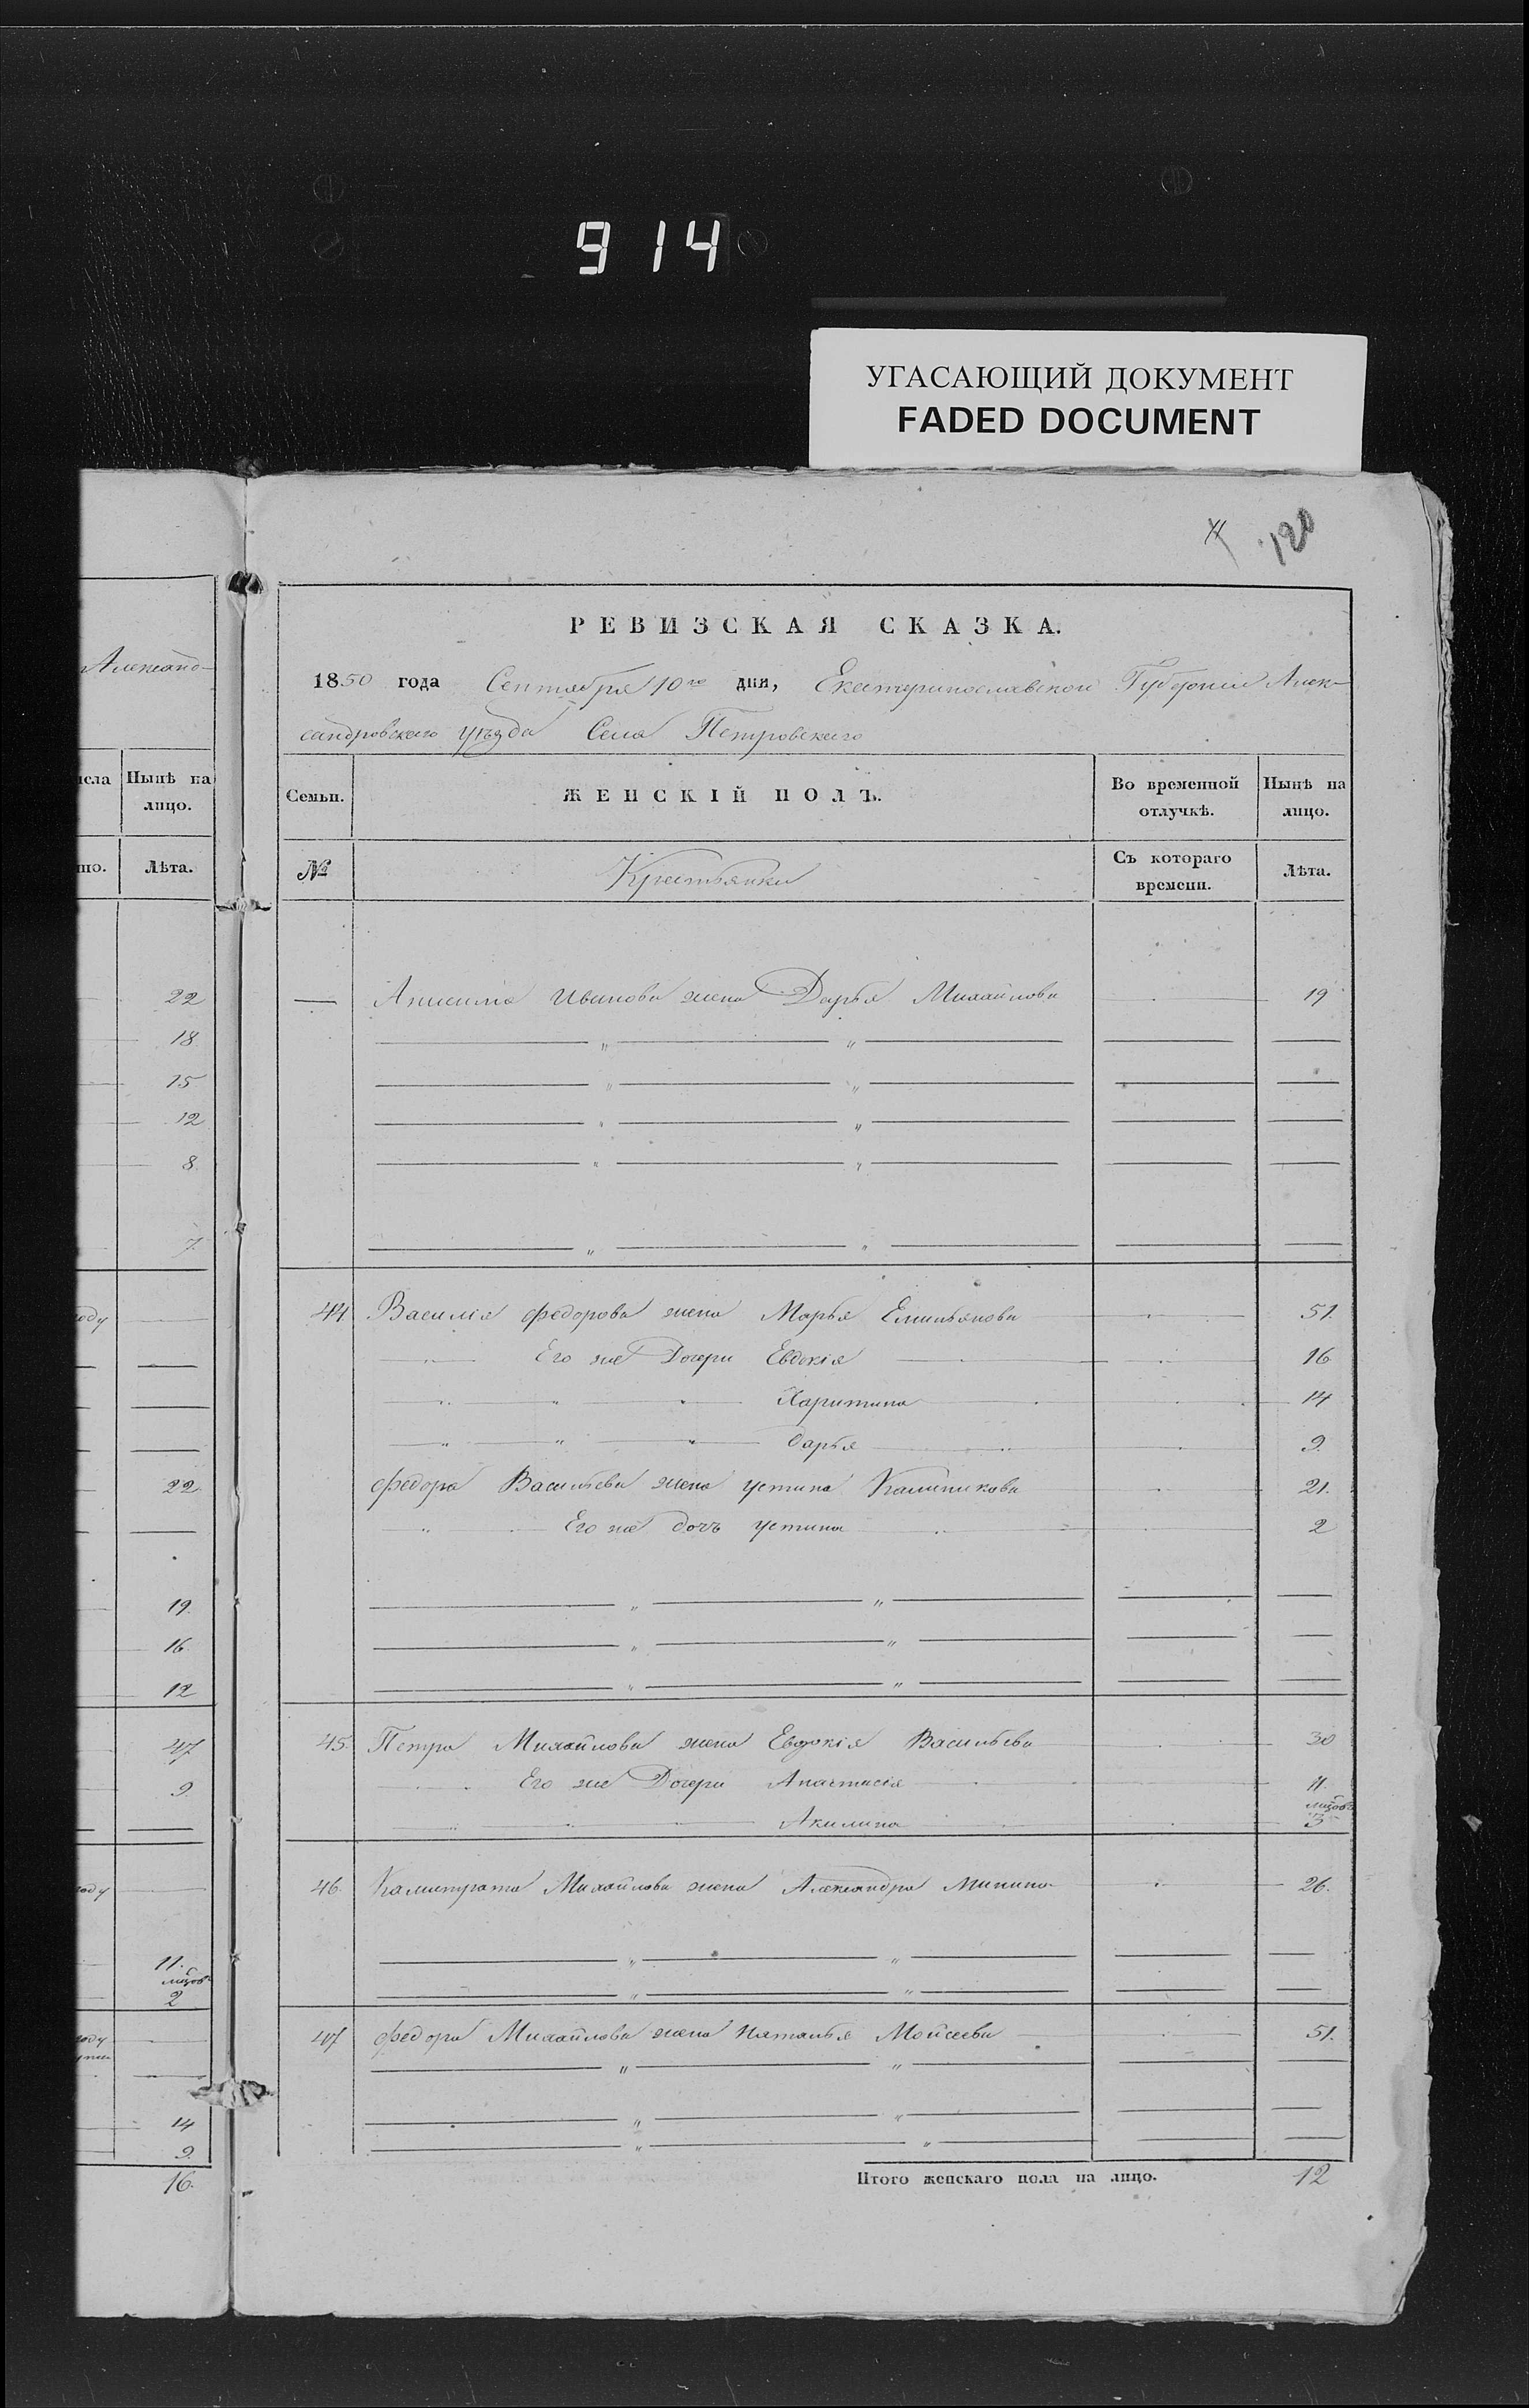 914
УГАСАЮЩИЙ ДОКУМЕНТ
FADED DOCUMENT
120
Александ-
Нынѣ на
лицо.
Лѣта.
22
18
15
12
8.
7.
оду
22.
19.
16.
12
47
9.
оду
11.
2
оду
14
9.
16.
РЕВИЗСКАЯ СКАЗКА.
1850 года Сентября 10го дня, Екатеринославской Губернiи Алек-
сандровского уѣзда Села Петровского
Семьи.
ЖЕНСКІЙ ПОЛЪ.
Во временной отлучкѣ.
Нынѣ на лицо.
№
Крестьянки
Съ котораго времени.
Лѣта.
— Анисима Иванова жена Дарья Михайлова 19
44 Василiя Федорова жена Марья Емильянова 51.
" Его же Дочери Евдокiя 16
" " " Харитина 14
" " " Дарья 9.
Федора Васильева жена Устина Калиникова 21.
" Его же дочь Устина 2
45. Петра Михайлова жена Евдокiя Васильева 30
Его же Дочери Анастасiя 11.
Акилина 3
46. Калистрата Михайлова жена Александра Минина 26.
47 Федора Михайлова жена Наталья Мойсеева 51.
Итого женскаго пола на лицо. 12